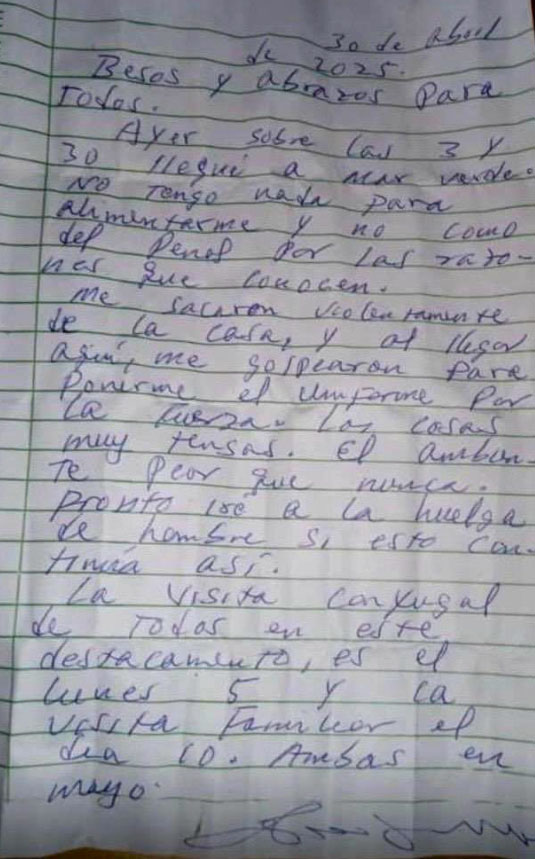 30 de abril
de 2025.
Besos y abrazos para
Todos.
Ayer sobre las 3 y
30 llegué a mar verde.
No tengo nada para
alimentarme y no como
del penal por las razo-
nes que conocen.
me sacaron violentamente
de la casa, y al llegar
aquí, me golpearon para
ponerme el uniforme por
la fuerza. Las cosas
muy tensas. El ambien-
te peor que nunca.
pronto iré a la huelga
de hambre si esto con-
tinúa así.
La visita conyugal
de Todos en este
destacamento, es el
lunes 5 y la
visita familiar el
día 10. Ambas en
mayo.